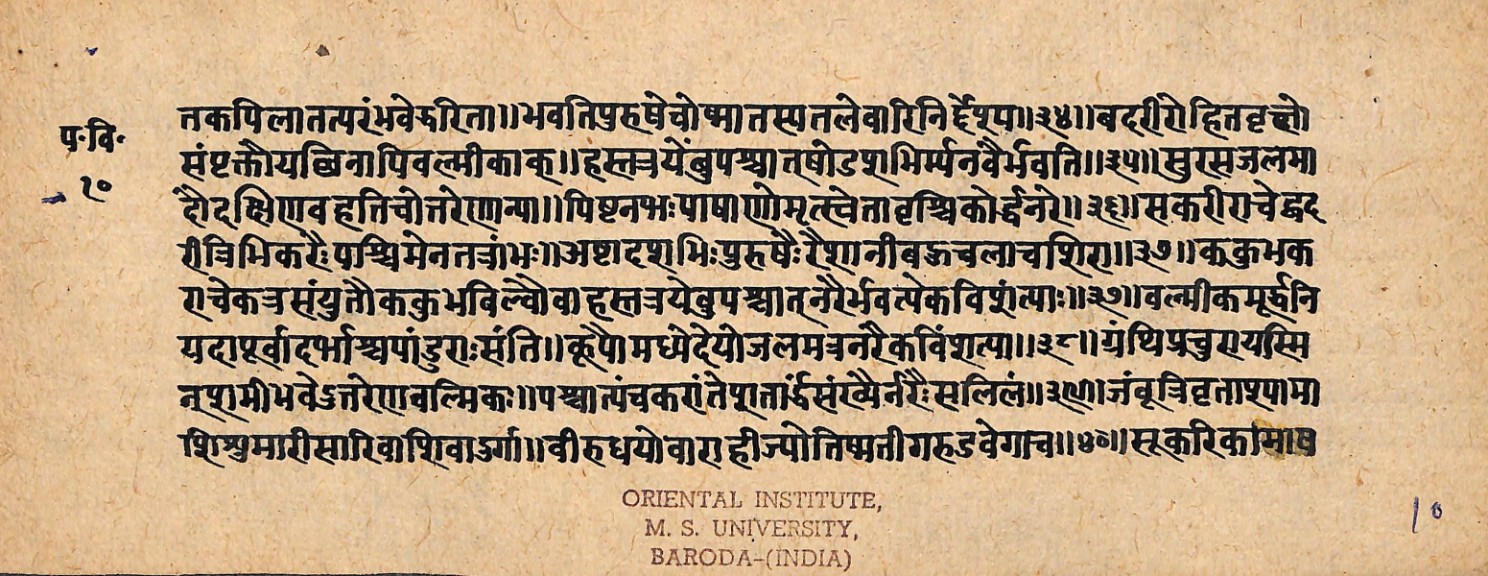 तकपिलातत्परंभवेद्धरिता॥भवतिपुरुषेचोष्मातस्यतलेवारिनिर्द्देश्यम्॥३४॥बदरीरोहितवृक्षौ
प॰वि॰
संपृक्तौयद्विनापिवल्मीकाक्॥हस्तत्रयेंबुपश्चात्षोडशभिर्म्मनवैर्भवति॥३५॥सुरसजलमा
१०
दौदक्षिणावहतिचोत्तरेणान्या॥पिष्टनभःपाषाणोमृत्स्वेतावृश्चिकोर्द्धनरे॥३६॥सकरीराचेद्वद
रीत्रिभिकरैःपश्चिमेनतत्रांभः॥अष्टादशभिःपुरुषैःरैशानीबहुचलाचशिरा॥३७॥ककुभक
राचेकत्रसंयुतौककुभविल्वौवाहस्तत्रयेंबुपश्चात्नरैर्भवत्येकविशंत्याः॥३७॥वल्मीकमूर्द्धनि
यदापूर्वादर्भाश्चपांडुराःसंति॥कूपोमध्येदेयोजलमत्रनरैकविंशत्या॥३८॥ग्रंथिप्रचुरायस्मि
न्शमीभवेउत्तरेणवल्मिकः॥पश्चात्पंचकरांतेशतार्द्धसंख्यैर्नरैःसलिलं॥३९॥जंबूत्रिवृताश्यामा
शिशुमारीसारिवाशिवाउर्गा॥वीरुधयोवाराहीज्योतिष्मतीगरुडवेगाच॥४०॥सूकरिकामाष
ORIENTAL INSTITUTE,
M. S. UNIVERSITY,
BARODA-(INDIA)
10